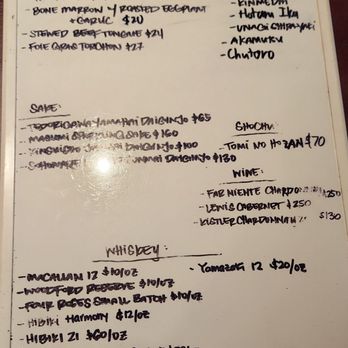 - BONE MARROW W/ ROASTED EGGPLANT
+ GARLIC $20
- STEWED BEEF TONGUE $21
- FOIE GRAS TORCHON $27
- KINMEDAI
- Hotaru Ika
- UNAGI SHIRAYAKI
- AKAMUTSU
- Chutoro
SAKE:
- TEDORIGAWA YAMAHAI DAIGINJO $65
- MASUMI SPARKLING SAKE $160
DAIGINJO $100
DAIGINJO $130
SHOCHU:
- TOMI NO HOZAN $70
WINE:
- FAR NIENTE CHARDONNAY $250
- LEWIS CABERNET $250
- KISTLER CHARDONNAY $130
WHISKEY:
- MACALLAN 12 $10/OZ
- WOODFORD RESERVE $10/OZ
- FOUR ROSES SMALL BATCH $10/OZ
- HIBIKI Harmony $12/OZ
- HIBIKI 21 $60/OZ
- Yamazaki 12 $20/OZ